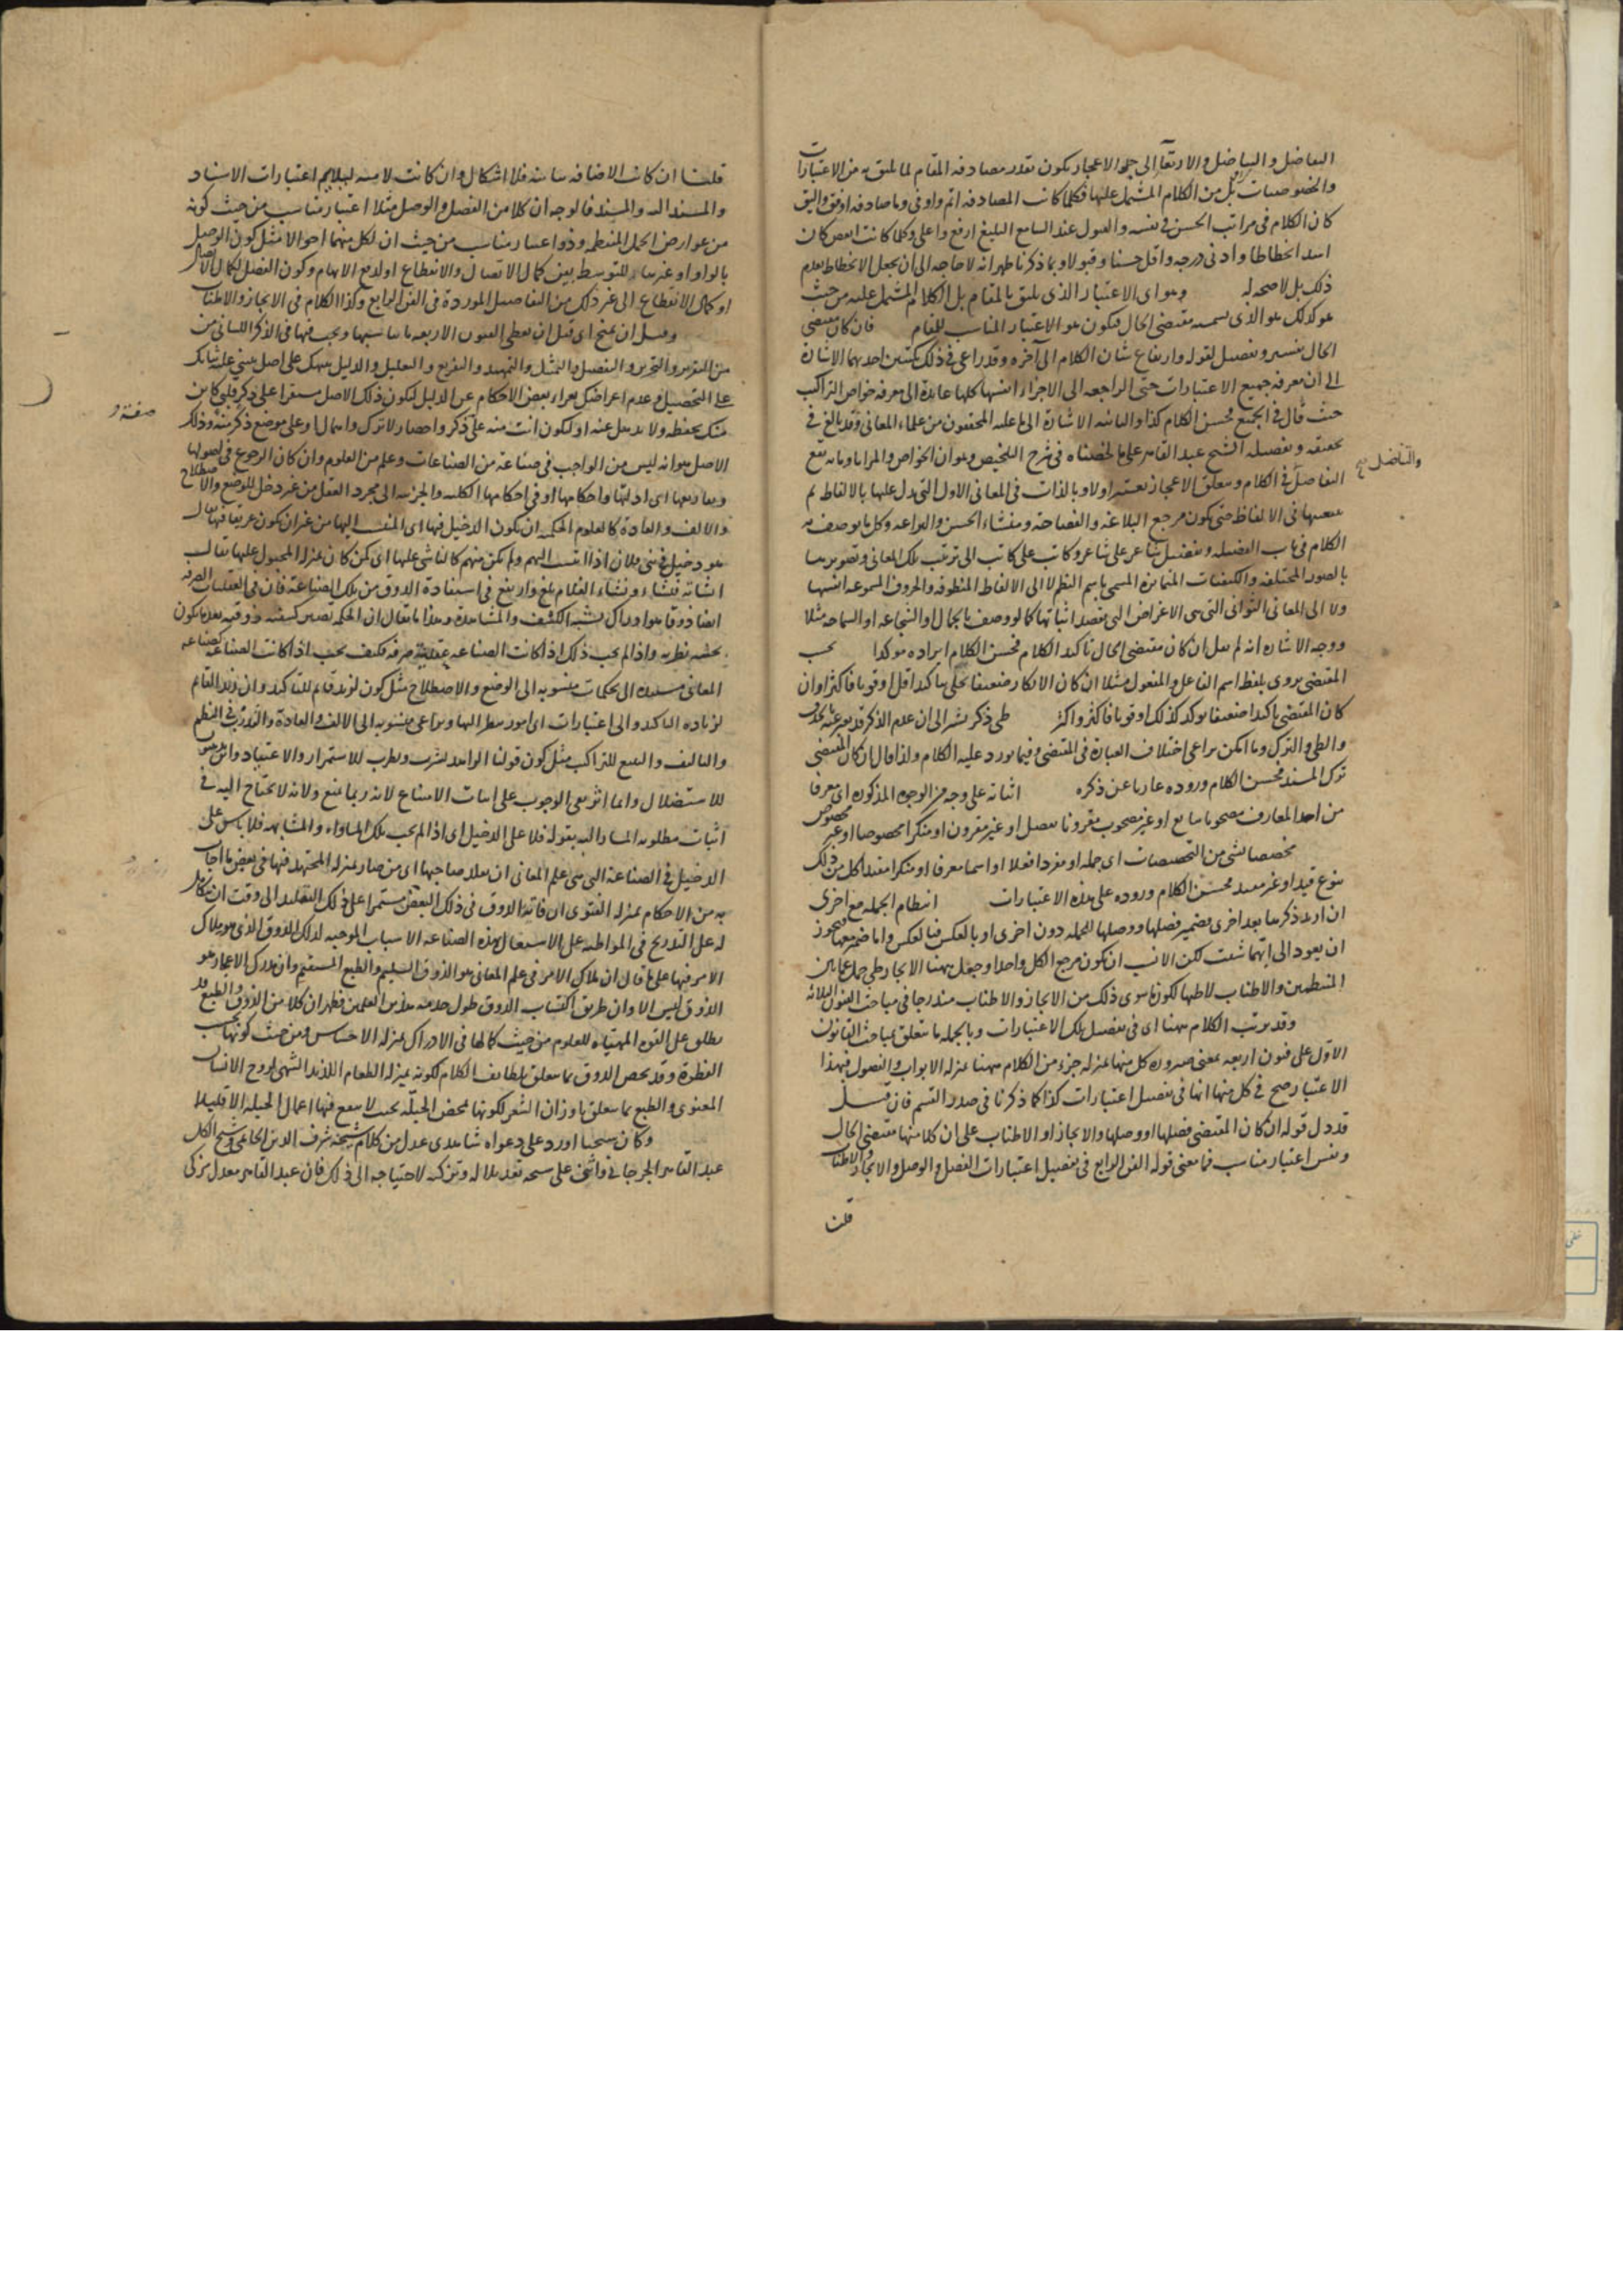 التفاضل والتناضل والارتقاء الى حد الاعجاز يكون بقدر مصادفة المقام لما يليق به من الاعتبارات
والخصوصيات بل من الكلام المشتمل عليها فكلما كانت المصادفة اتم واوفى وما صادفه اوفق واليق
كان الكلام في مراتب الحسن في نفسه والقبول عند السامع البليغ ارفع واعلى وكلما كانت انقص كان
اشد انحطاطا وادنى درجة واقل حسنا وقبولا وبما ذكرنا ظهر انه لا حاجة الى ان يجعل الانحطاط بعدم
ذلك بل لا صحة له وهو اى الاعتبار الذى يليق بالمقام بل الكلام المشتمل عليه من حيث
هو كذلك هو الذى نسميه مقتضى الحال فيكون هو الاعتبار المناسب للمقام فان كان مقتضى
الحال تفسير وتفصيل لقوله وارتفاع شان الكلام الى آخره وقد راعى في ذلك نكتتين احديهما الاشارة
الى ان معرفة جميع الاعتبارات حتى الراجعة الى الاجزاء انفسها كلها عايدة الى معرفة خواص التراكيب
حيث قال في الجميع فحسن الكلام كذا والثانية الاشارة الى ما عليه المحققون من علماء المعانى وقد بالغ في
تحقيقه وتفصيله الشيخ عبد القاهر على ما لخصناه في شرح التلخيص وهو ان الخواص والمزايا وما به يقع
والتناضل صح
التفاضل في الكلام ومتعلق الاعجاز يعتبر اولا وبالذات في المعانى الاول التي يدل عليها بالالفاظ ثم
بتبعيتها في الالفاظ حتى يكون مرجع البلاغة والفصاحة ومنشاء الحسن والبراعة وكل ما يوصف به
الكلام في باب الفضيلة وتفضيل شاعر على شاعر وكاتب على كاتب الى ترتيب تلك المعانى وتصويرها
بالصور المختلفة والكيفيات المتمايزة المسمى باسم النظم لا الى الالفاظ المنطوقة والحروف المسموعة انفسها
ولا الى المعانى الثوانى التي هى الاغراض التي يقصد اثباتها كما لو وصف بالجمال او الشجاعة او السماحة مثلا
ووجه الاشارة انه لم يقل ان كان مقتضى الحال تاكيد الكلام فحسن الكلام ايراده موكدا بحسب
المقتضى يروى بلفظ اسم الفاعل والمفعول مثلا ان كان الانكار ضعيفا تحلى بتاكيد اقل او قويا فاكثر وان
كان المقتضى تاكيدا ضعيفا يوكد كذلك او قويا فاكثر واكثر طى ذكره يشير الى ان عدم الذكر قد يعبر عنه بالحذف
والطى والترك وما امكن يراعى اختلاف العبارة في المقتضى وفيما يورد عليه الكلام ولذا قال ان كان المقتضى
ترك المسند فحسن الكلام وروده عاريا عن ذكره اثباته على وجه من الوجوه المذكورة اى معرفا
من احد المعارف مصحوبا بتابع او غير مصحوب مقرونا بفصل او غير مقرون او منكرا مخصوصا او غير مخصوص
مخصصا بشئ من التخصيصات اى جملة او مفردا فعلا او اسما معرفا او منكرا مقيدا كل من ذلك
بنوع قيد او غير مقيد فحسن الكلام وروده على هذه الاعتبارات انتظام الجملة مع اخرى
ان اريد ذكرها بعد اخرى فضمير فصلها ووصلها للجملة دون اخرى او بالعكس فبالعكس واما ضمير معها فيجوز
ان يعود الى ايتهما شئت لكن الانسب ان يكون مرجع الكل واحدا وجعل ههنا الايجاز طى جمل عما بين
المنتظمين والاطناب لاطيها لكون ما سوى ذلك من الايجاز والاطناب مندرجا في مباحث الفنون الثلاثة
وقد ترتب الكلام ههنا اى في تفصيل تلك الاعتبارات وبالجملة ما يتعلق بمباحث القانون
الاول على فنون اربعة بمعنى صيرورة كل منها بمنزلة جزء من الكلام ههنا بمنزلة الابواب والفصول فبهذا
الاعتبار صح في كل منها انها في تفصيل اعتبارات كذا كما ذكرنا في صدر القسم فان قيل
قد دل قوله ان كان المقتضى فصلها او وصلها والايجاز او الاطناب على ان كلا منها مقتضى الحال
ونفس اعتبار مناسب فما معنى قوله الفن الرابع في تفصيل اعتبارات الفصل والوصل والايجاز والاطناب
قلنا
قلنا ان كانت الاضافة بيانية فلا اشكال وان كانت لامية ليلايم اعتبارات الاسناد
والمسند اليه والمسند فالوجه ان كلا من الفصل والوصل مثلا اعتبار مناسب من حيث كونه
من عوارض الجمل المنتظمة وذو اعتبار مناسب من حيث ان لكل منهما احوالا مثل كون الوصل
بالواو او غيرها للتوسط بين كمال الاتصال والانقطاع او لدفع الايهام وكون الفصل لكمال الاتصال
او كمال الانقطاع الى غير ذلك من التفاصيل الموردة في الفن الرابع وكذا الكلام في الايجاز والاطناب
وقبل ان نمنح اى قبل ان نعطى الفنون الاربعة ما يناسبها ويجب فيها في الذكر اللسانى من
من التقرير والتحرير والتفصيل والتمثيل والتمهيد والتفريع والتعليل والدليل ننبهك على اصل يبتنى عليه ثباتك
على التحصيل وعدم اعراضك بعراء بعض الاحكام عن الدليل ليكون ذلك الاصل مستقرا على ذكر قلبى كاين
صفة و
منك بحفظه ولا تذهل عنه او لتكون انت منه على ذكر واحضار لا ترك واهمال او على موضع ذكر منه وذلك
الاصل هو انه ليس من الواجب في صناعة من الصناعات وعلم من العلوم وان كان الرجوع في اصولها
وتفاريعها اى ادلتها واحكامها او في احكامها الكلية والجزئية الى مجرد العقل من غير دخل للوضع والاصطلاح
والالف والعادة كالعلوم الحكمية ان يكون الدخيل فيها اى المنتسب اليها من غير ان يكون عريقا فيها يقال
هو دخيل في بنى فلان اذا انتسب اليهم ولم يكن منهم كالناشى عليها اى كمن كان بمنزلة المجبول عليها يقال
انشاته فنشاء ونشاء الغلام بلغ وارتفع في استفادة الذوق من تلك الصناعة فان في العقليات الصرفة
ايضا ذوقا هو ادراك يشبه الكشف والمشاهدة وهذا ما يقال ان الحكمة تصير كشفية ذوقية بعد ما يكون
بحثية نظرية واذا لم يجب ذلك اذا كانت الصناعة عقلية صرفة فكيف يجب اذا كانت الصناعة كصناعة
المعانى مستندة الى تحكمات منسوبة الى الوضع والاصطلاح مثل كون لزيد قائم للتاكيد وان زيدا لقائم
لزيادة التاكيد والى اعتبارات اى امور ينظر اليها ويراعى منسوبة الى الالف والعادة والتدرب في النظم
والتاليف والتتبع للتراكيب مثل كون قولنا الزاهد يشرب ويطرب للاستمرار والاعتياد وابن هو
للاستضلال وانما اثر نفى الوجوب على اثبات الامتناع لانه ربما يمنع ولانه لا يحتاج اليه في
اثبات مطلوبه المشار اليه بقوله فلا على الدخيل اى اذا لم يجب تلك المساواة والمشابهة فلا باس على
الدخيل في الصناعة التي هى علم المعانى ان يقلد صاحبها اى من صار بمنزلة المجتهد فيها في بعض ما اجاب
به من الاحكام بمنزلة الفتوى ان فاته الذوق في ذلك البعض مستمرا على ذلك التقليد الى وقت ان يتكامل
له على التدريج في المواظبة على الاشتغال بهذه الصناعة الاسباب الموجبة لذلك الذوق الذى هو ملاك
الامر فيها على ما قال ان ملاك الامر في علم المعانى هو الذوق السليم والطبع المستقيم وان مدرك الاعجاز هو
الذوق ليس الا وان طريق اكتساب الذوق طول خدمة هذين العلمين فظهر ان كلا من الذوق والطبع قد
يطلق على القوة المهيئة للعلوم من حيث كمالها في الادراك بمنزلة الاحساس ومن حيث كونها بحسب
الفطرة وقد يخص الذوق بما يتعلق بلطايف الكلام لكونه بمنزلة الطعام اللذيذ الشهى لروح الانسان
المعنوى والطبع بما يتعلق باوزان الشعر لكونها بمحض الجبلة بحيث لا ينفع فيها اعمال الحيلة الا قليلا
وكان شيخنا اورد على دعواه شاهدى عدل من كلام شيخه شرف الدين الحاتمى وشيخ الكل
عبد القاهر الجرجانى واثنى على شيخه بعد بلاله وتزكيه لاحتياجه الى ذلك فان عبد القاهر معدل مزكى